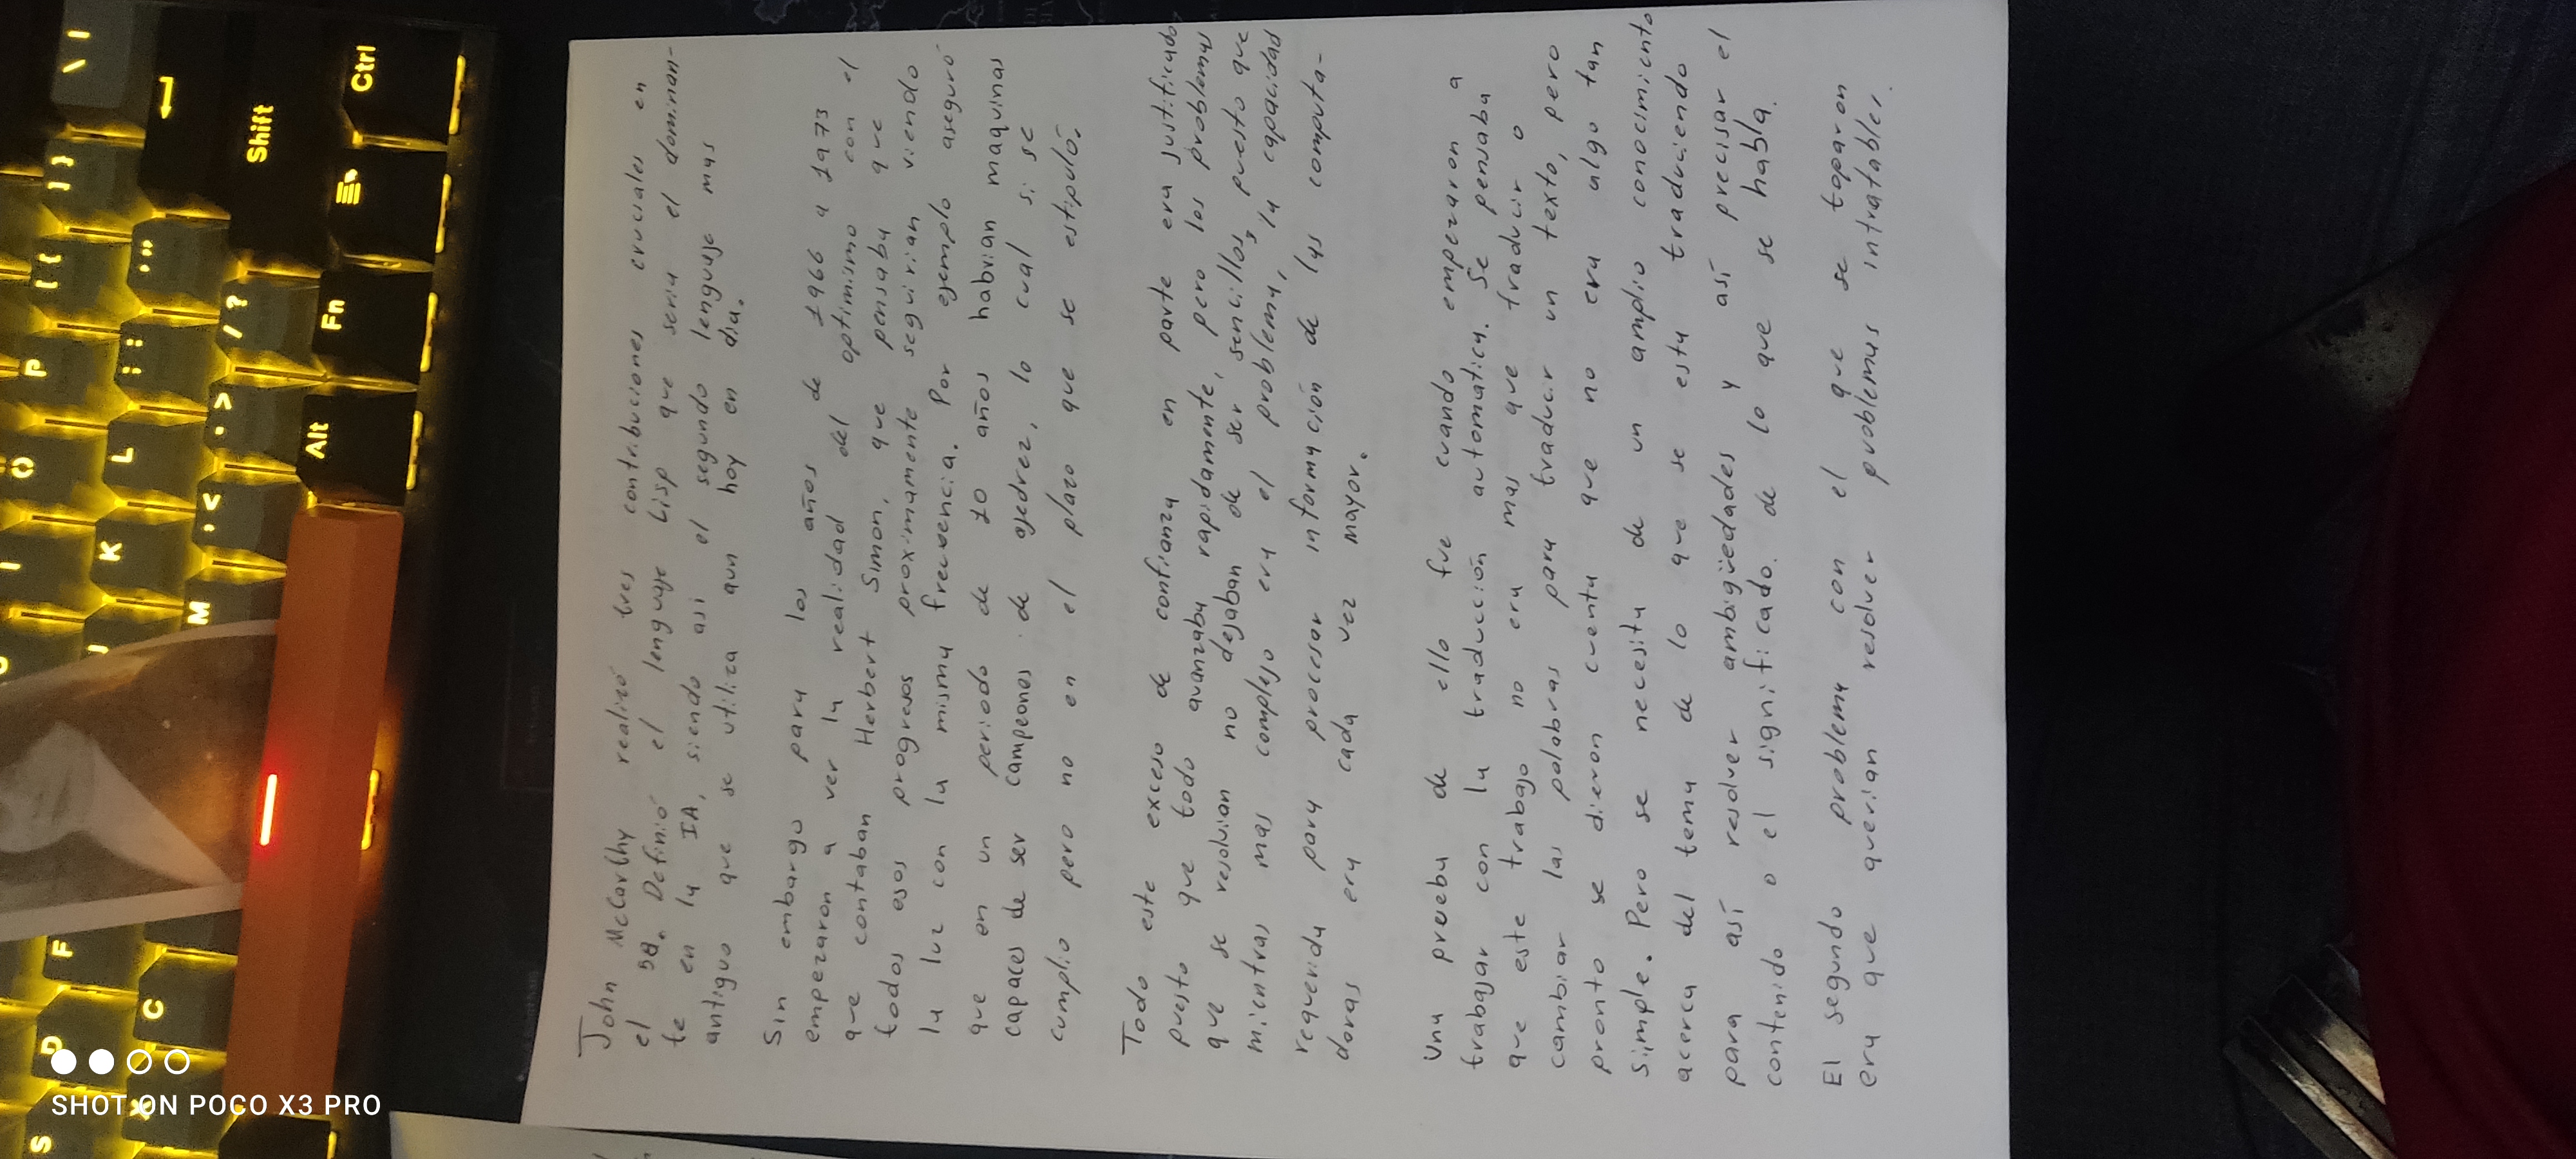 John McCarthy realizó tres contribuciones cruciales en
el 58. Definió el lenguaje Lisp que seria el dominan-
te en la IA, siendo asi el segundo lenguaje mas
antiguo que se utiliza aun hoy en dia.
Sin embargo para los años de 1966 a 1973
empezaron a ver la realidad del optimismo con el
que contaban Herbert Simon, que pensaba que
todos esos progresos proximamente seguirian viendo
la luz con la misma frecuencia. Por ejemplo aseguró
que en un periodo de 10 años habrian maquinas
capaces de ser campeones de ajedrez, lo cual si se
cumplio pero no en el plazo que se estipuló.
Todo este exceso de confianza en parte era justificado
puesto que todo avanzaba rapidamente, pero los problemas
que se resolvian no dejaban de ser sencillos, puesto que
mientras mas complejo era el problema, la capacidad
requerida para procesar información de las computa-
doras era cada vez mayor.
Una prueba de ello fue cuando empezaron a
trabajar con la traducción automatica. Se pensaba
que este trabajo no era mas que traducir o
cambiar las palabras para traducir un texto, pero
pronto se dieron cuenta que no era algo tan
simple. Pero se necesita de un amplio conocimiento
acerca del tema de lo que se esta traduciendo
para así resolver ambigüedades y así precisar el
contenido o el significado. de lo que se habla.
El segundo problema con el que se toparon
era que querian resolver problemas intratables.
\ |
Shift
Ctrl
] }
[ {
' "
/ ?
Fn
P
; :
. >
Alt
O
L
, <
I
K
M
J
F
D
C
S
SHOT ON POCO X3 PRO